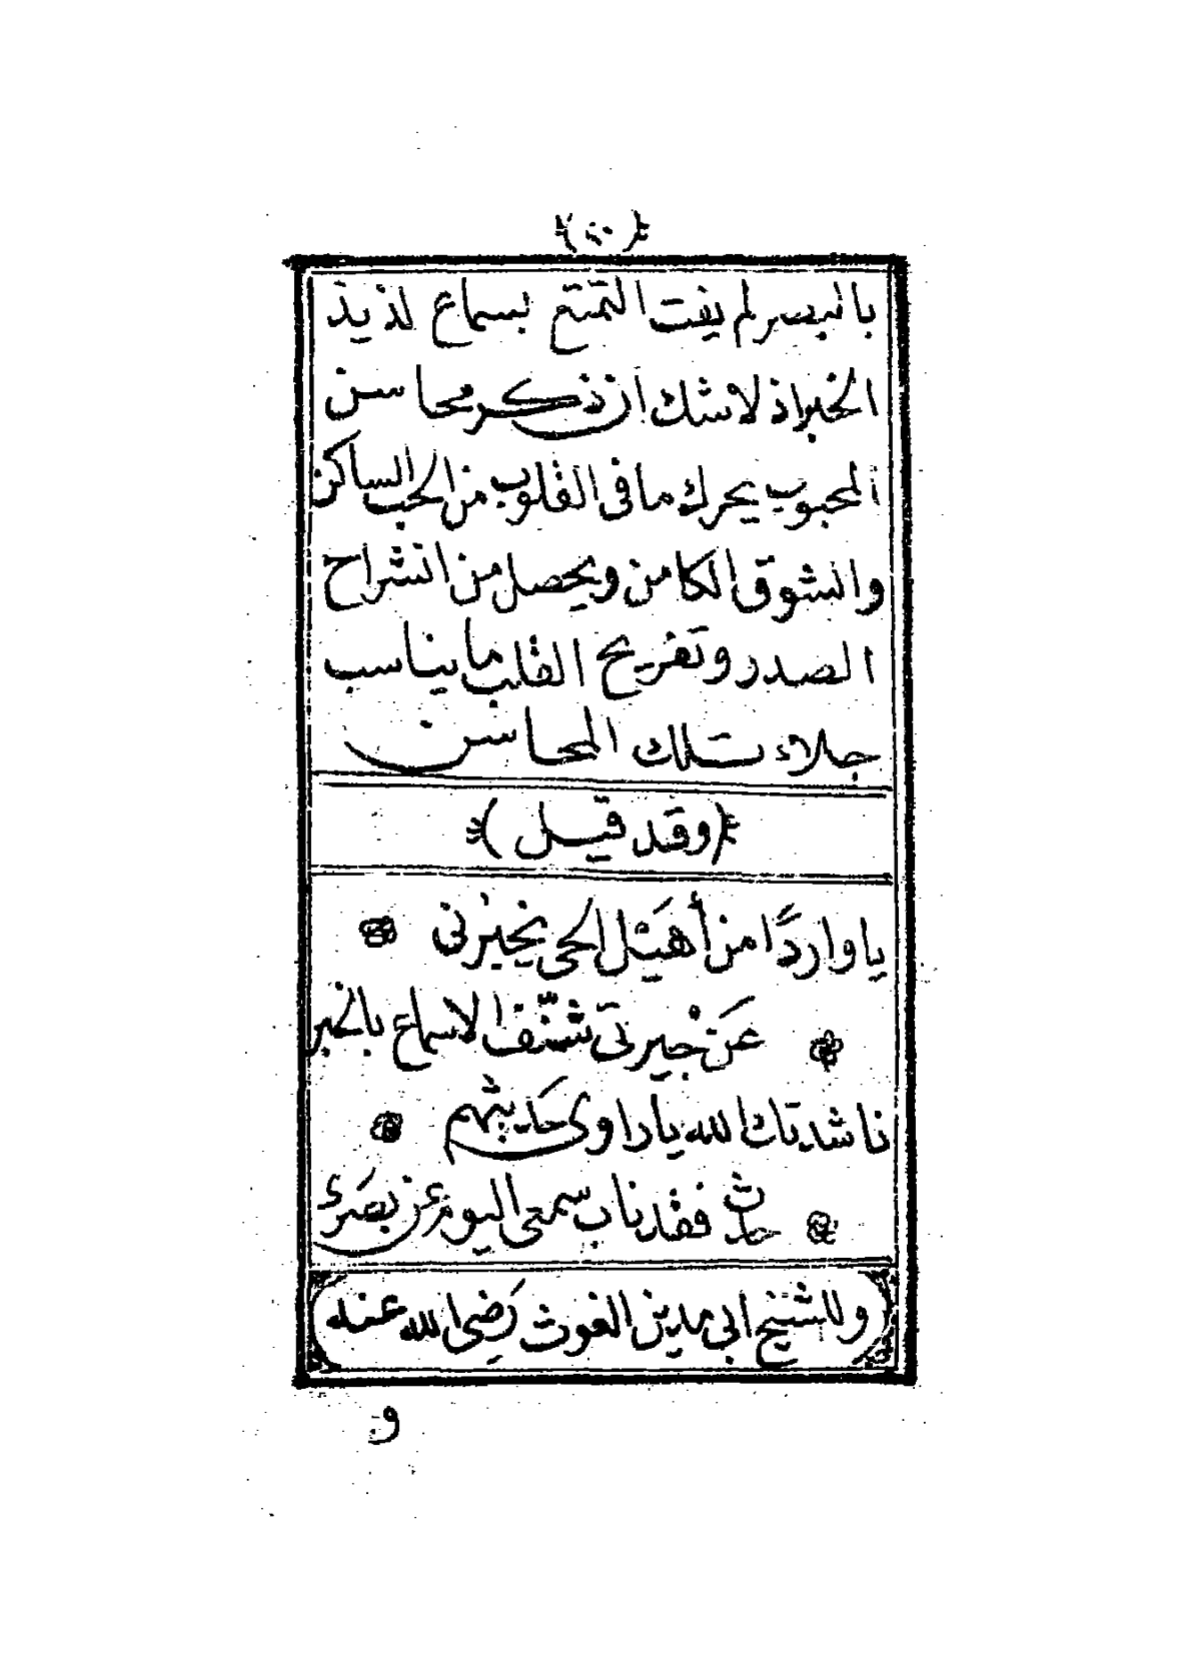 بالبصر لم يفت التمتع بسماع لذيذ
الخبر اذ لاشك ان ذكر محاسن
المحبوب يحرك ما فى القلوب من الحب الساكن
والشوق الكامن ويحصل من انشراح
الصدر وتفريح القلب ما يناسب
جلاء تلك المحاسن
(وقد قيل)
يا واردًا من أهَيْل الحى يخبرنى
عَن جيرتى شنّف الاسماع بالخبر
ناشدتك الله يا راوى حَديثهم
حدث فقد ناب سمعى اليوم عن بصَرى
وللشيخ ابى مدين الغوث رَضِى الله عنه
و